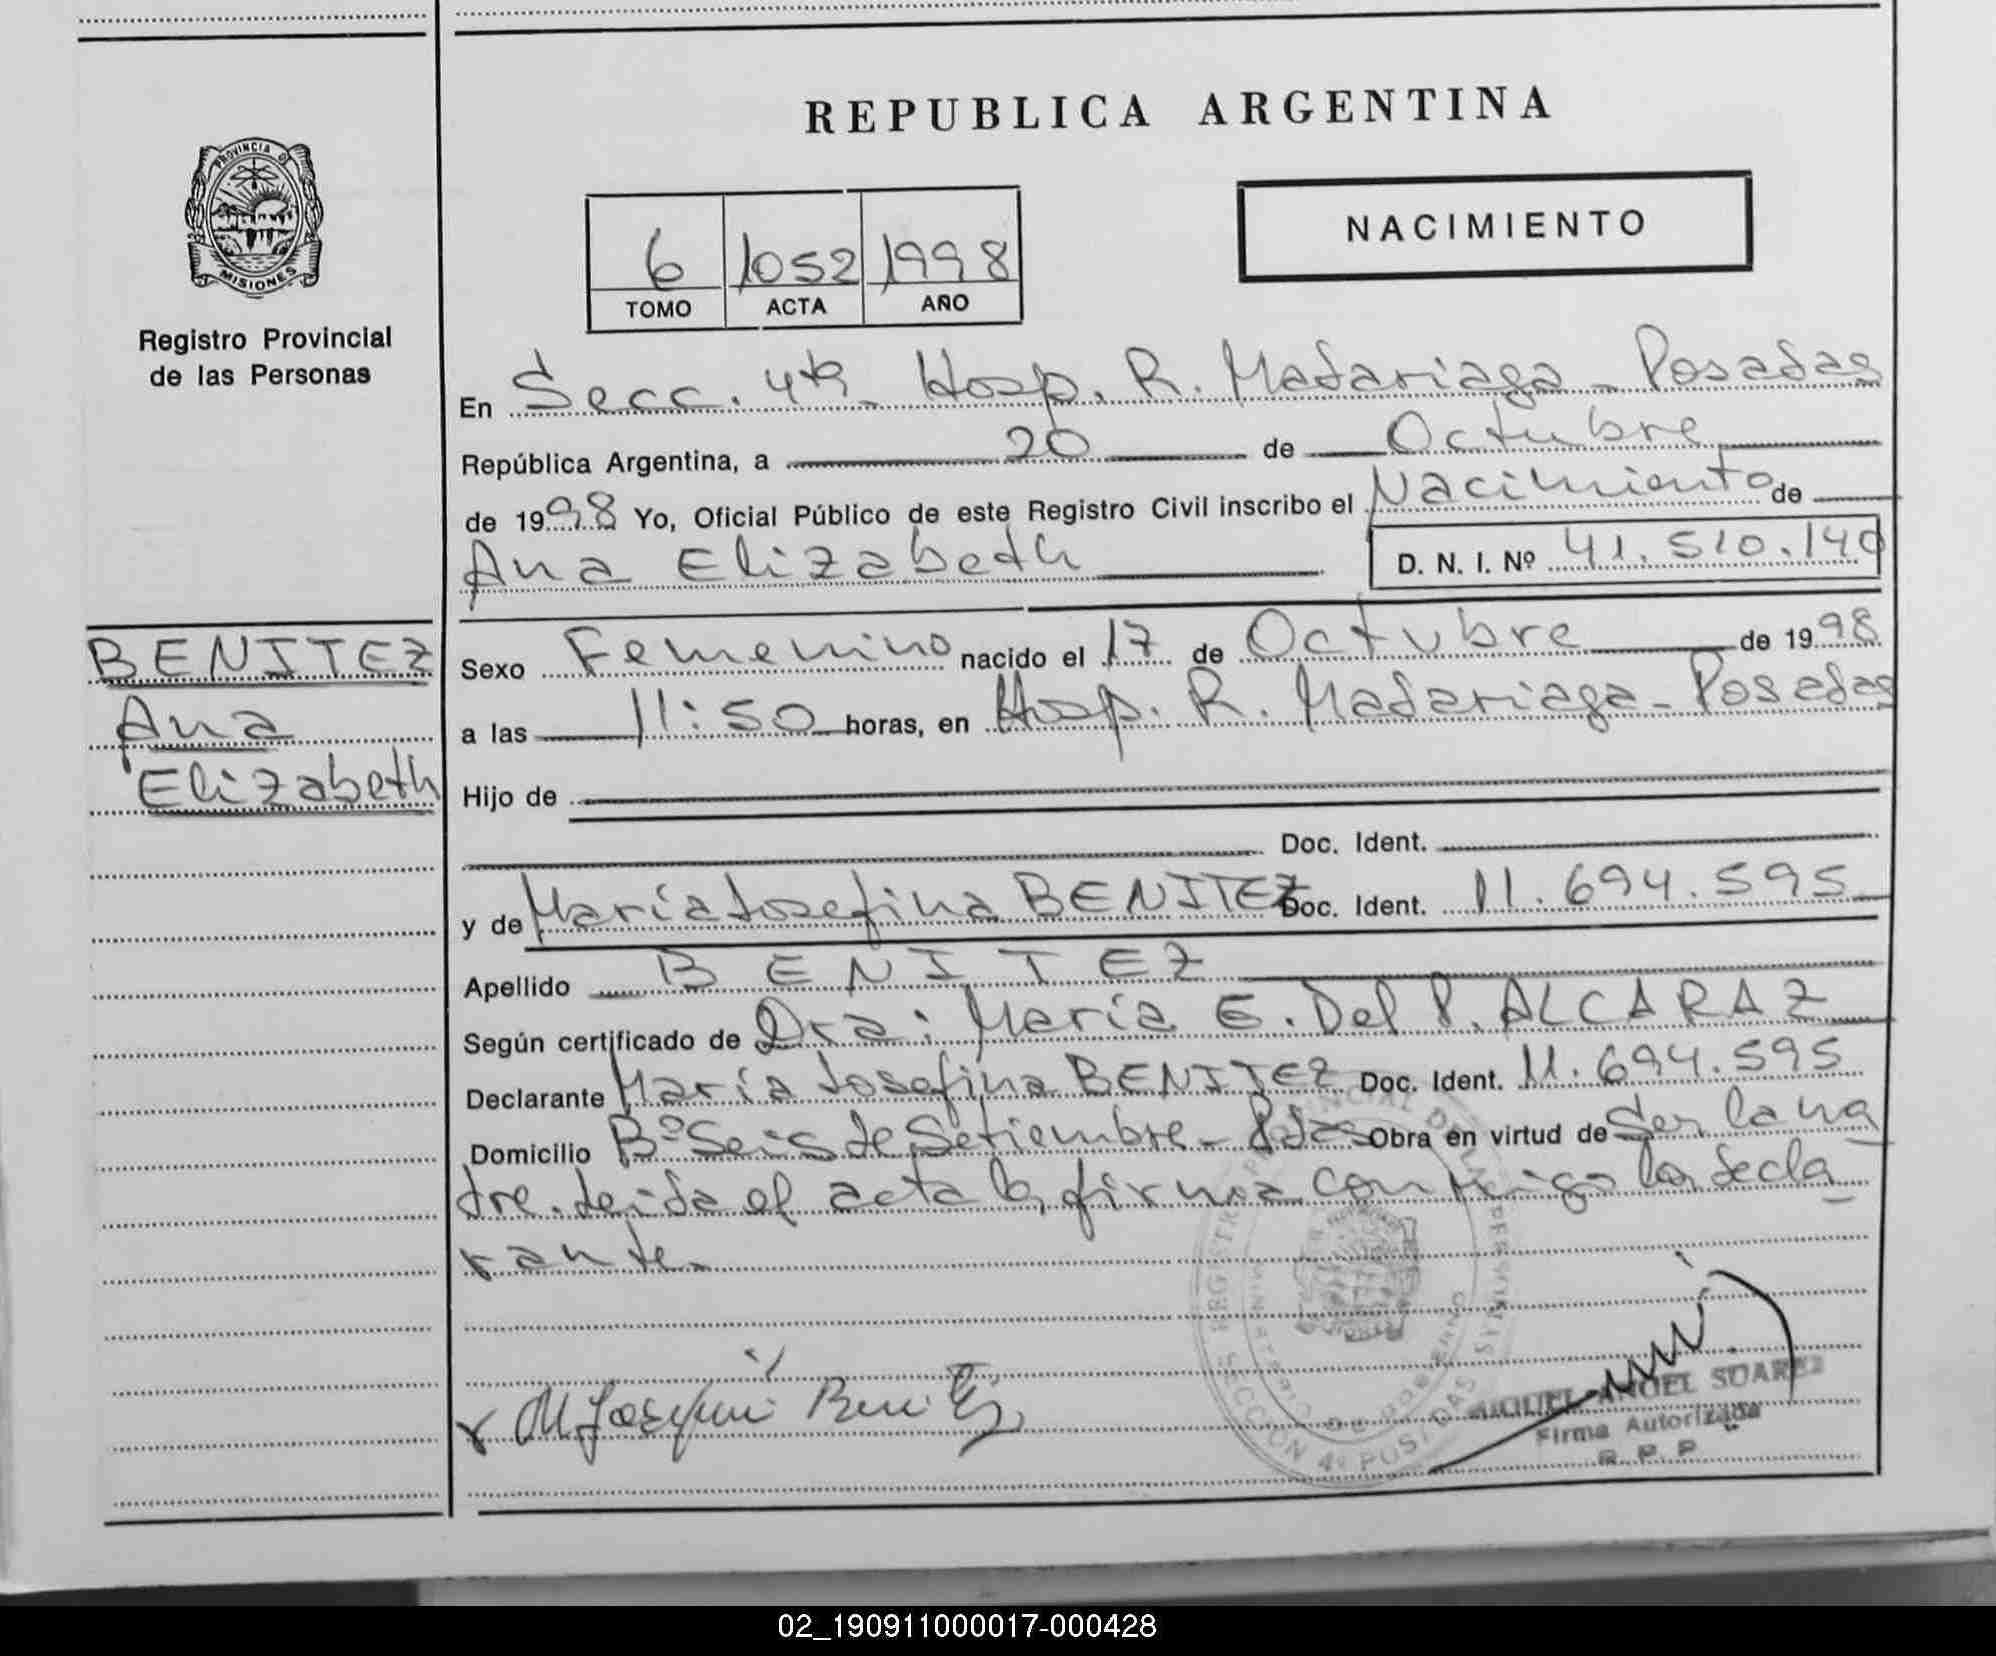 REPUBLICA ARGENTINA
PROVINCIA DE
MISIONES
Registro Provincial
de las Personas
6 1052 1998
TOMO ACTA AÑO
NACIMIENTO
En Secc. 4ta. Hosp. R. Madariaga - Posadas
República Argentina, a 20 de Octubre
de 1998 Yo, Oficial Público de este Registro Civil inscribo el Nacimiento de
Ana Elizabeth
D. N. I. Nº 41.510.140
BENITEZ
Ana
Elizabeth
Sexo Femenino nacido el 17 de Octubre de 1998
a las 11:50 horas, en Hosp. R. Madariaga - Posadas
Hijo de
Doc. Ident.
y de María Josefina BENITEZ Doc. Ident. 11.694.595
Apellido BENITEZ
Según certificado de Dra: María E. Del P. ALCARAZ
Declarante María Josefina BENITEZ Doc. Ident. 11.694.595
Domicilio Bº Seis de Setiembre - Pdas Obra en virtud de Ser la ma
dre. Leida el acta la firma conmigo la decla
rante.
M Josefina Benitez
SECCION 4ª POSADAS
MIGUEL ANGEL SUAREZ
Firma Autorizada
R. P. P.
02_190911000017-000428